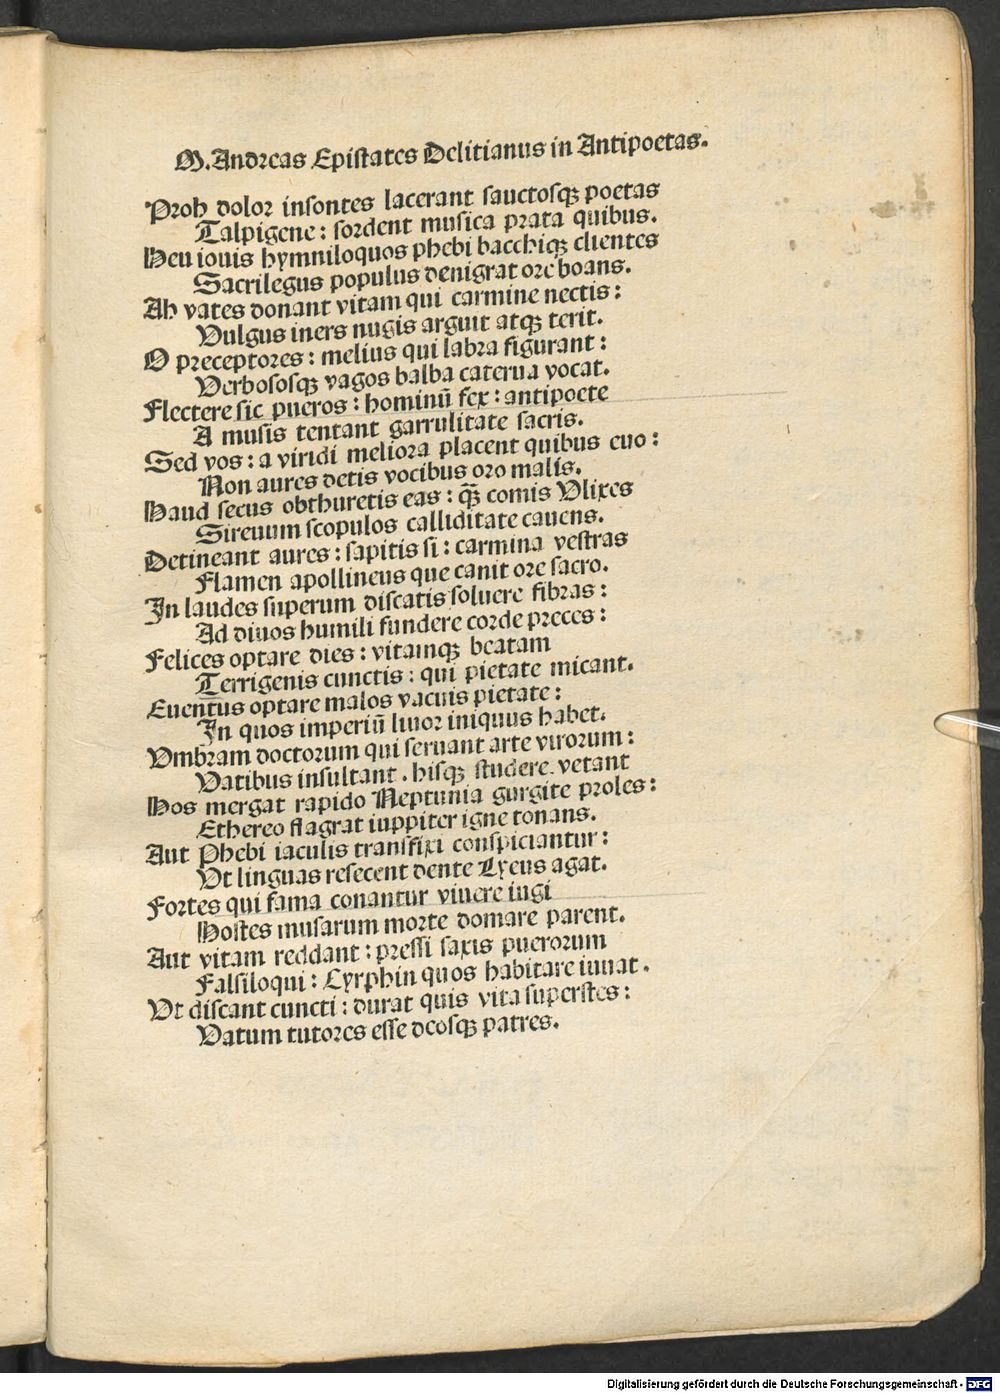 M. Andreas Epistates Delitianus in Antipoetas.
Proh dolor insontes lacerant sauctosqꝫ poetas
Talpigene: sordent musica prata quibus.
Heu iouis hymniloquos phebi bacchiqꝫ clientes
Sacrilegus populus denigrat ore boans.
Ah vates donant vitam qui carmine nectis:
Vulgus iners nugis arguit atqꝫ terit.
O preceptores: melius qui labra figurant:
Verbososqꝫ vagos balba caterua vocat.
Flectere sic pueros: hominū fex: antipoete
A musis tentant garrulitate sacris.
Sed vos: a viridi meliora placent quibus euo:
Non aures detis vocibus oro malis.
Haud secus obthuretis eas: qꝫ̄ comis Vlixes
Sireuum scopulos calliditate cauens.
Detineant aures: sapitis si: carmina vestras
Flamen apollineus que canit ore sacro.
In laudes superum discatis soluere fibras:
Ad diuos humili fundere corde preces:
Felices optare dies: vitamqꝫ beatam
Terrigenis cunctis: qui pietate micant.
Euentus optare malos vacuis pietate:
In quos imperiū liuor iniquus habet.
Vmbram doctorum qui seruant arte virorum:
Vatibus insultant. hisqꝫ studere vetant
Hos mergat rapido Neptunia gurgite proles:
Ethereo flagrat iuppiter igne tonans.
Aut Phebi iaculis transfixi conspiciantur:
Vt linguas resecent dente Lyeus agat.
Fortes qui fama conantur viuere iugi
Hostes musarum morte domare parent.
Aut vitam reddant: pressi saxis puerorum
Falsiloqui: Cyrphin quos habitare iuuat.
Vt discant cuncti: durat quis vita superstes:
Vatum tutores esse deosqꝫ patres.
Digitalisierung gefördert durch die Deutsche Forschungsgemeinschaft - DFG